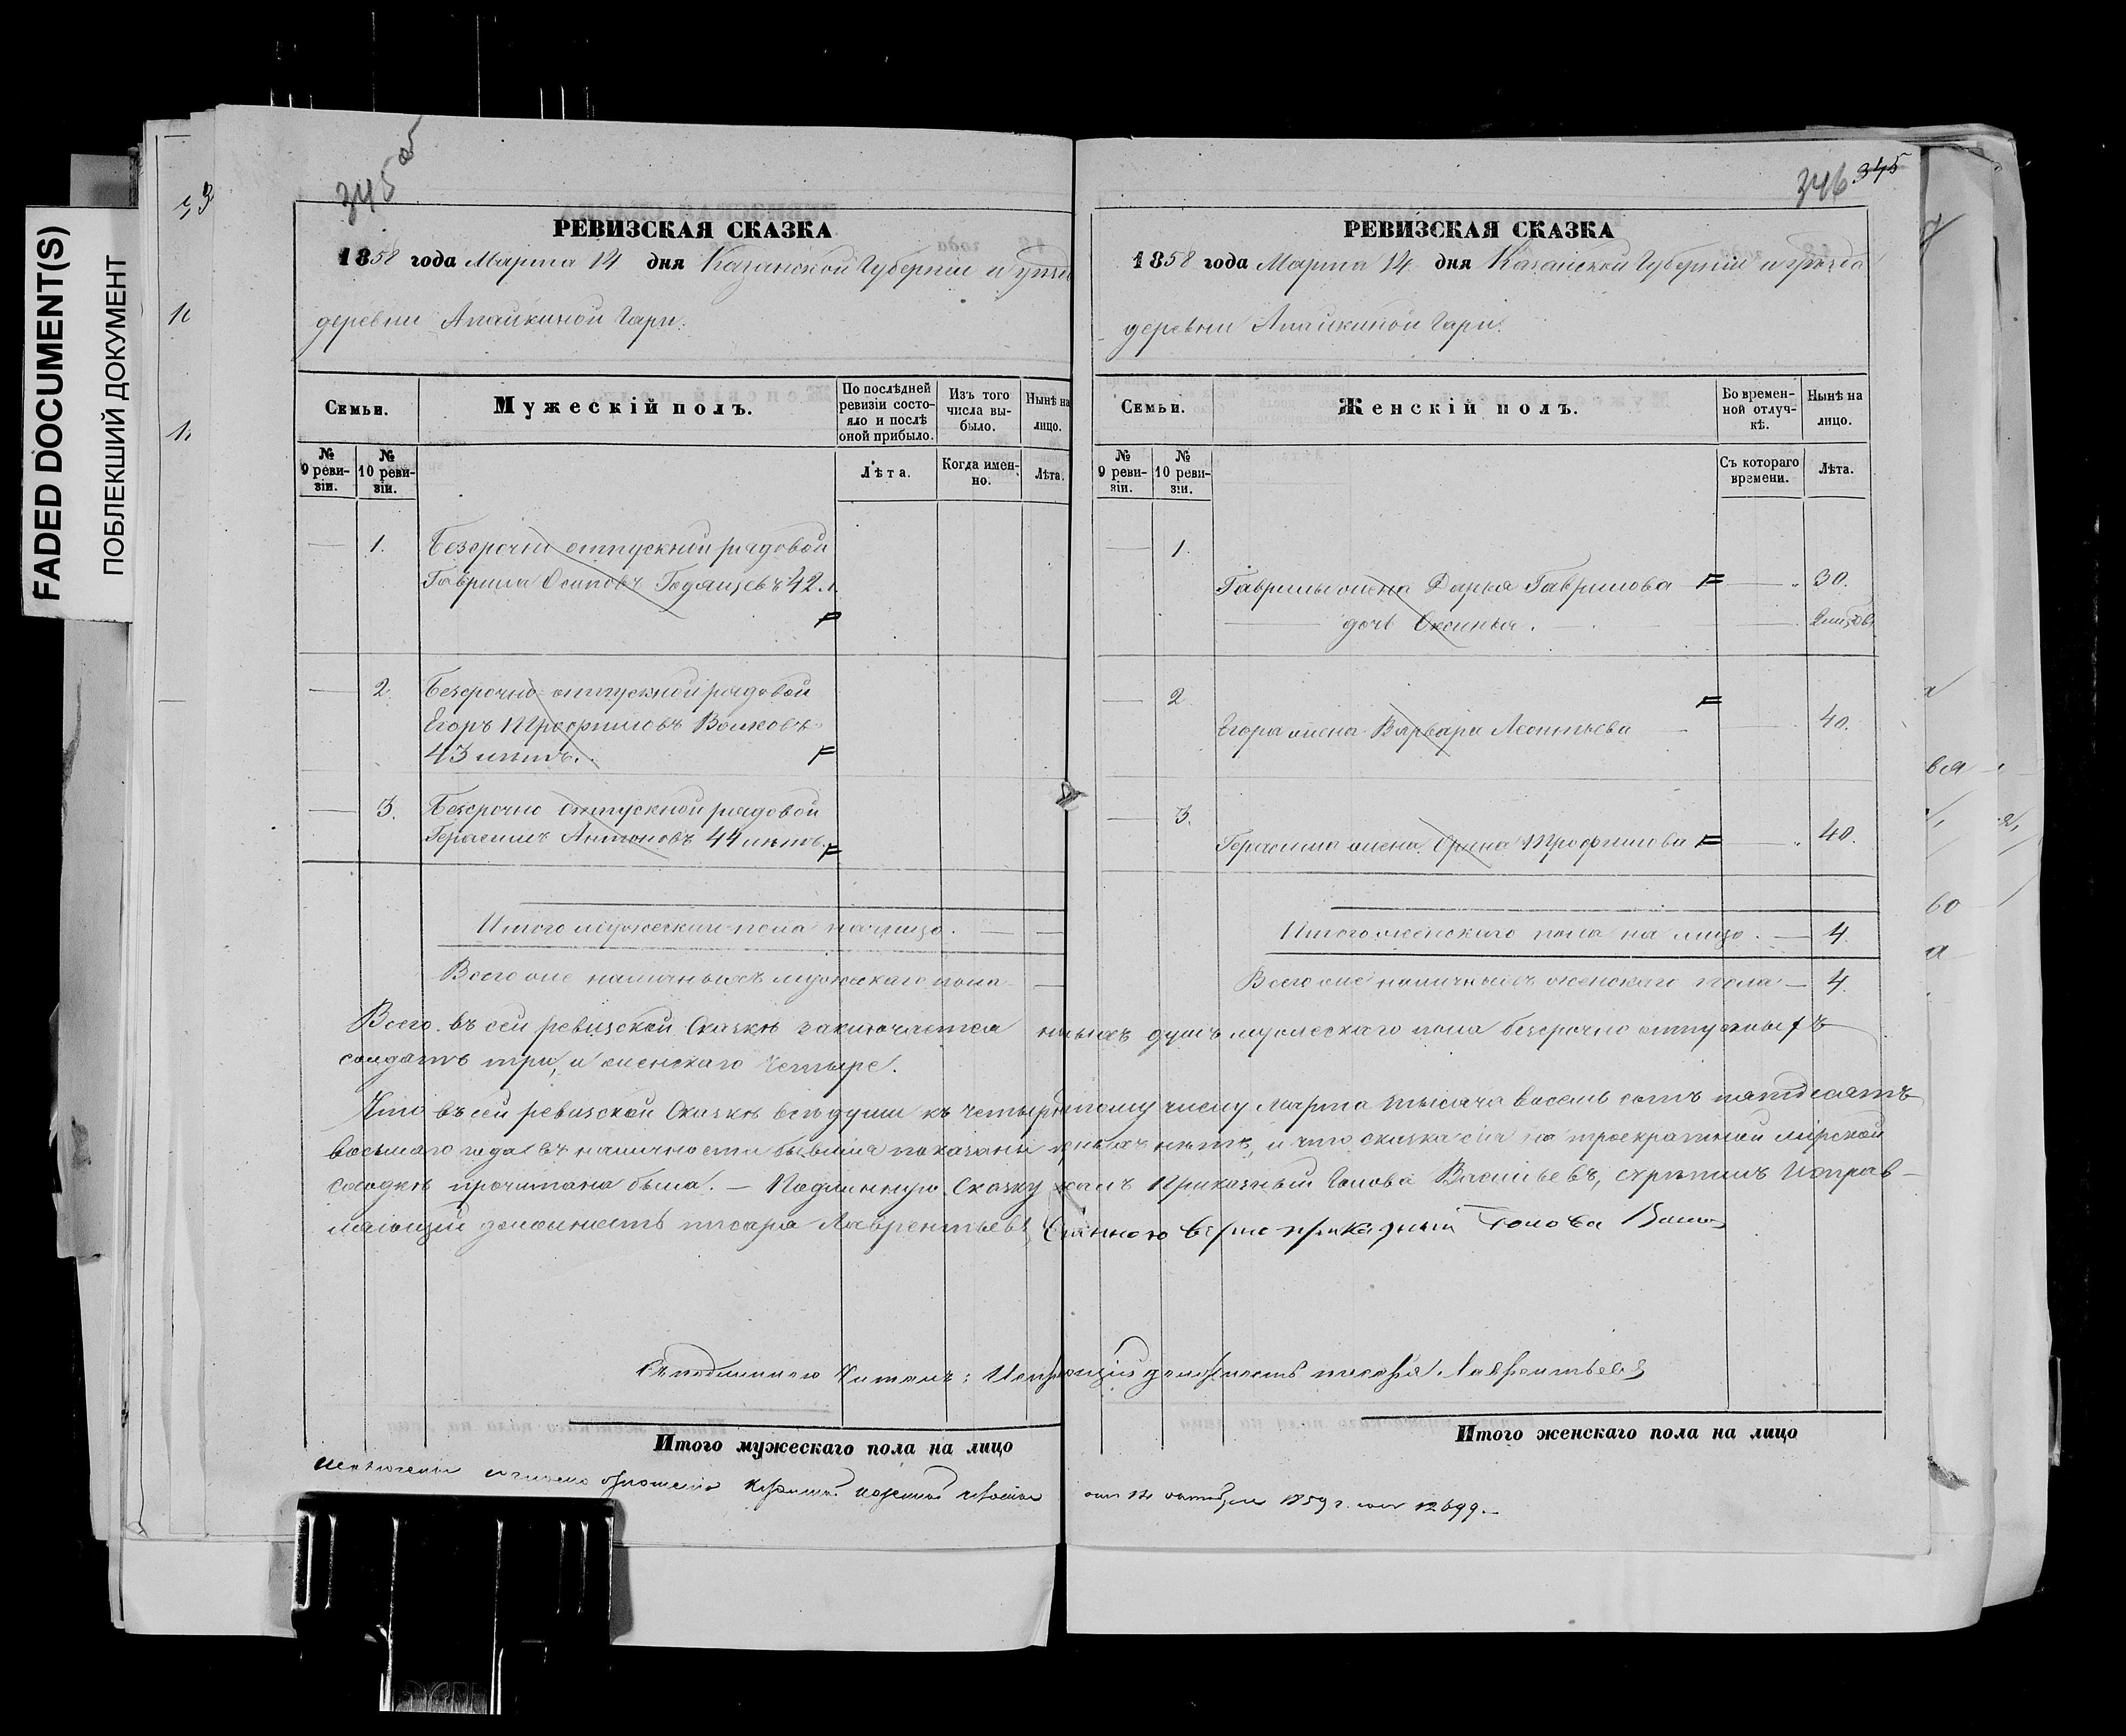 FADED DOCUMENT(S)
ПОБЛЕКШИЙ ДОКУМЕНТ
345 об
РЕВИЗСКАЯ СКАЗКА
1858 года Марта 14 дня Казанской Губерніи и уѣзда
деревни Апайкиной Гари.
Семьи.
Мужескій полъ.
По послѣдней ревизіи состояло и послѣ оной прибыло.
Изъ того числа выбыло.
Нынѣ на лицо.
№ 9 ревизіи.
№ 10 ревизіи.
Лѣта.
Когда именно.
Лѣта.
1. Безсрочно отпускный рядовой
Гаврила Осиповъ 42.
2. Безсрочно-отпускной рядовой
Егоръ Трофимовъ Волковъ
43 лѣтъ.
3. Безсрочно отпускной рядовой
Герасимъ Антоновъ 44 лѣтъ.
Итого мужескаго пола на лицо. —
Всего же наличныхъ мужескаго пола —
346 345
РЕВИЗСКАЯ СКАЗКА
1858 года Марта 14 дня Казанской Губерніи и уѣзда
деревни Апайкиной Гари.
Семьи.
Женскій полъ.
Во временной отлучкѣ.
Нынѣ на лицо.
№ 9 ревизіи.
№ 10 ревизіи.
Съ котораго времени.
Лѣта.
1.
Гаврилы жена Дарья Гаврилова 30.
дочь Оксинья.
2
Егора жена Варвара Леонтьева 40.
3.
Герасима жена Орина Трофимова 40.
Итого женскаго пола на лицо. — 4
Всего же наличныхъ женскаго пола — 4.
Всего въ сей ревизской Сказкѣ заключается душъ мужескаго пола безсрочно отпускныхъ
солдатъ три, и женскаго Четыре.
Что въ сей ревизской Сказкѣ всѣ души къ четырнатому числу Марта тысяча восемь сотъ пятдесятъ
восьмаго года въ наличности бывшія показаны нѣтъ, и что сказка сія на троекратной мірской
сходкѣ прочитана была. — Подлинную Сказку Приказный Голова Васильевъ, скрѣпилъ Исправ-
ляющій должность писаря Лаврентьевъ вѣрно приказный Голова
Съ подлиннымъ Читалъ: должность писаря Лаврентьевъ
Итого мужескаго пола на лицо
Итого женскаго пола на лицо
1859 г. 12699.